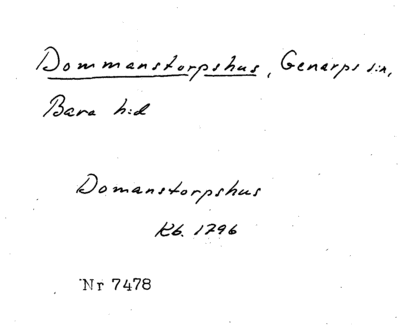 Dommanstorpshus, Genarps s:n,
Bara h:d
Domanstorpshus
Kb. 1796
Nr 7478